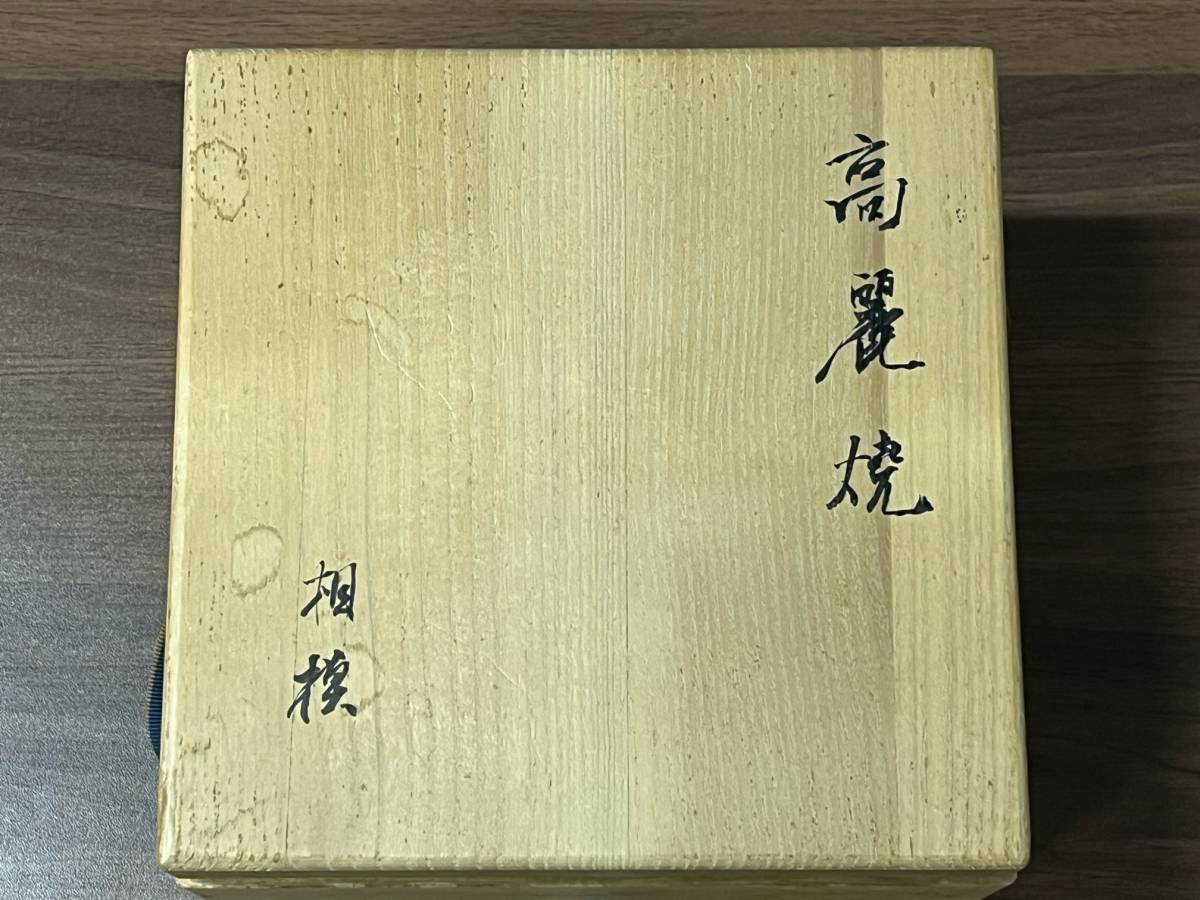 高麗焼
相模